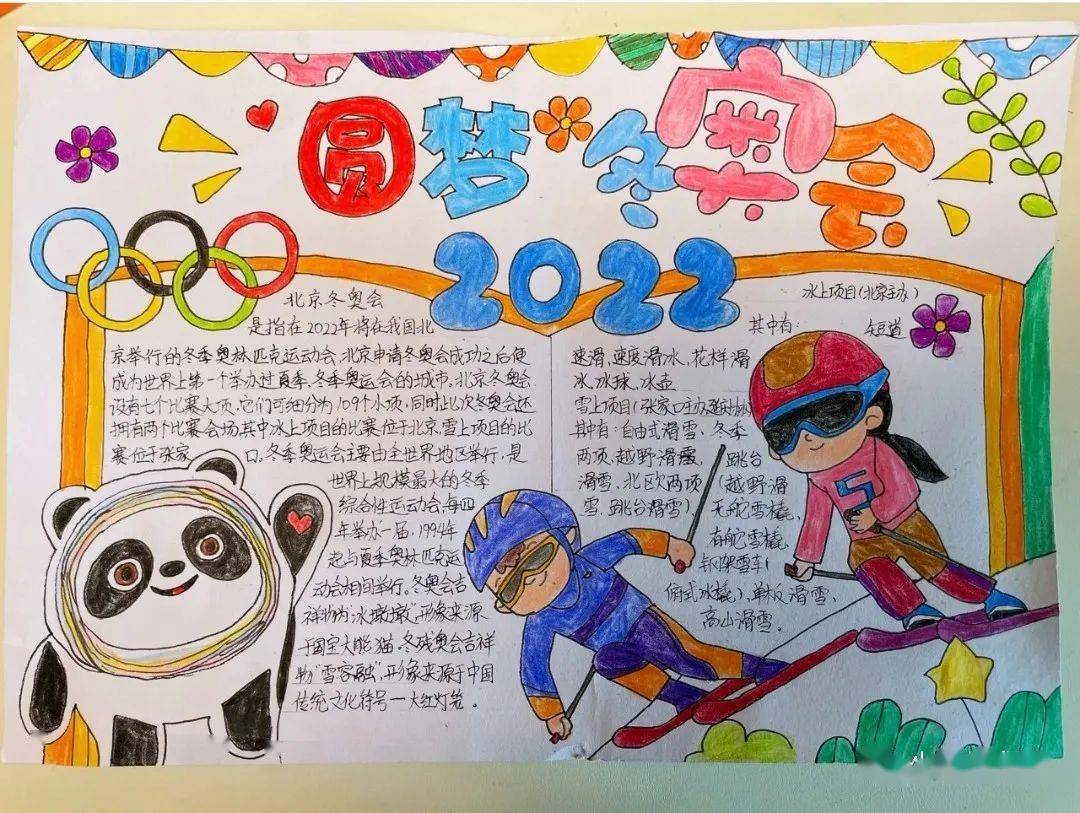 圆梦冬奥会
2022
北京冬奥会
是指在2022年将在我国北
京举行的冬季奥林匹克运动会,北京申请冬奥会成功之后便
成为世界上第一个举办过夏季、冬季奥运会的城市,北京冬奥会
设有七个比赛大项,它们可细分为109个小项,同时此次冬奥会还
拥有两个比赛会场其中冰上项目的比赛位于北京,雪上项目的比
赛位于张家口。冬季奥运会主要由全世界地区举行,是
世界上规模最大的冬季
综合性运动会,每四
年举办一届,1994年
起与夏季奥林匹克运
动会相间举行。冬奥会吉
祥物内"冰墩墩"形象来源
于国宝大熊猫。冬残奥会吉祥
物"雪容融",形象来源于中国
传统文化符号一大红灯笼。
冰上项目(北京主办)
其中有: 短道
速滑,速度滑冰,花样滑
冰,冰球,冰壶
雪上项目(张家口主办
其中有:自由式滑雪、冬季
两项,越野滑雪 跳台
滑雪、北欧两项(越野滑
雪,跳台滑雪) 无舵雪橇,
有舵雪橇
钢架雪车(
俯式冰橇)、单板滑雪、
高山滑雪。
S